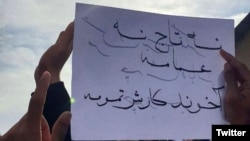 نه تاج نه
عمامه
آخوند کارش تمومه
Twitter